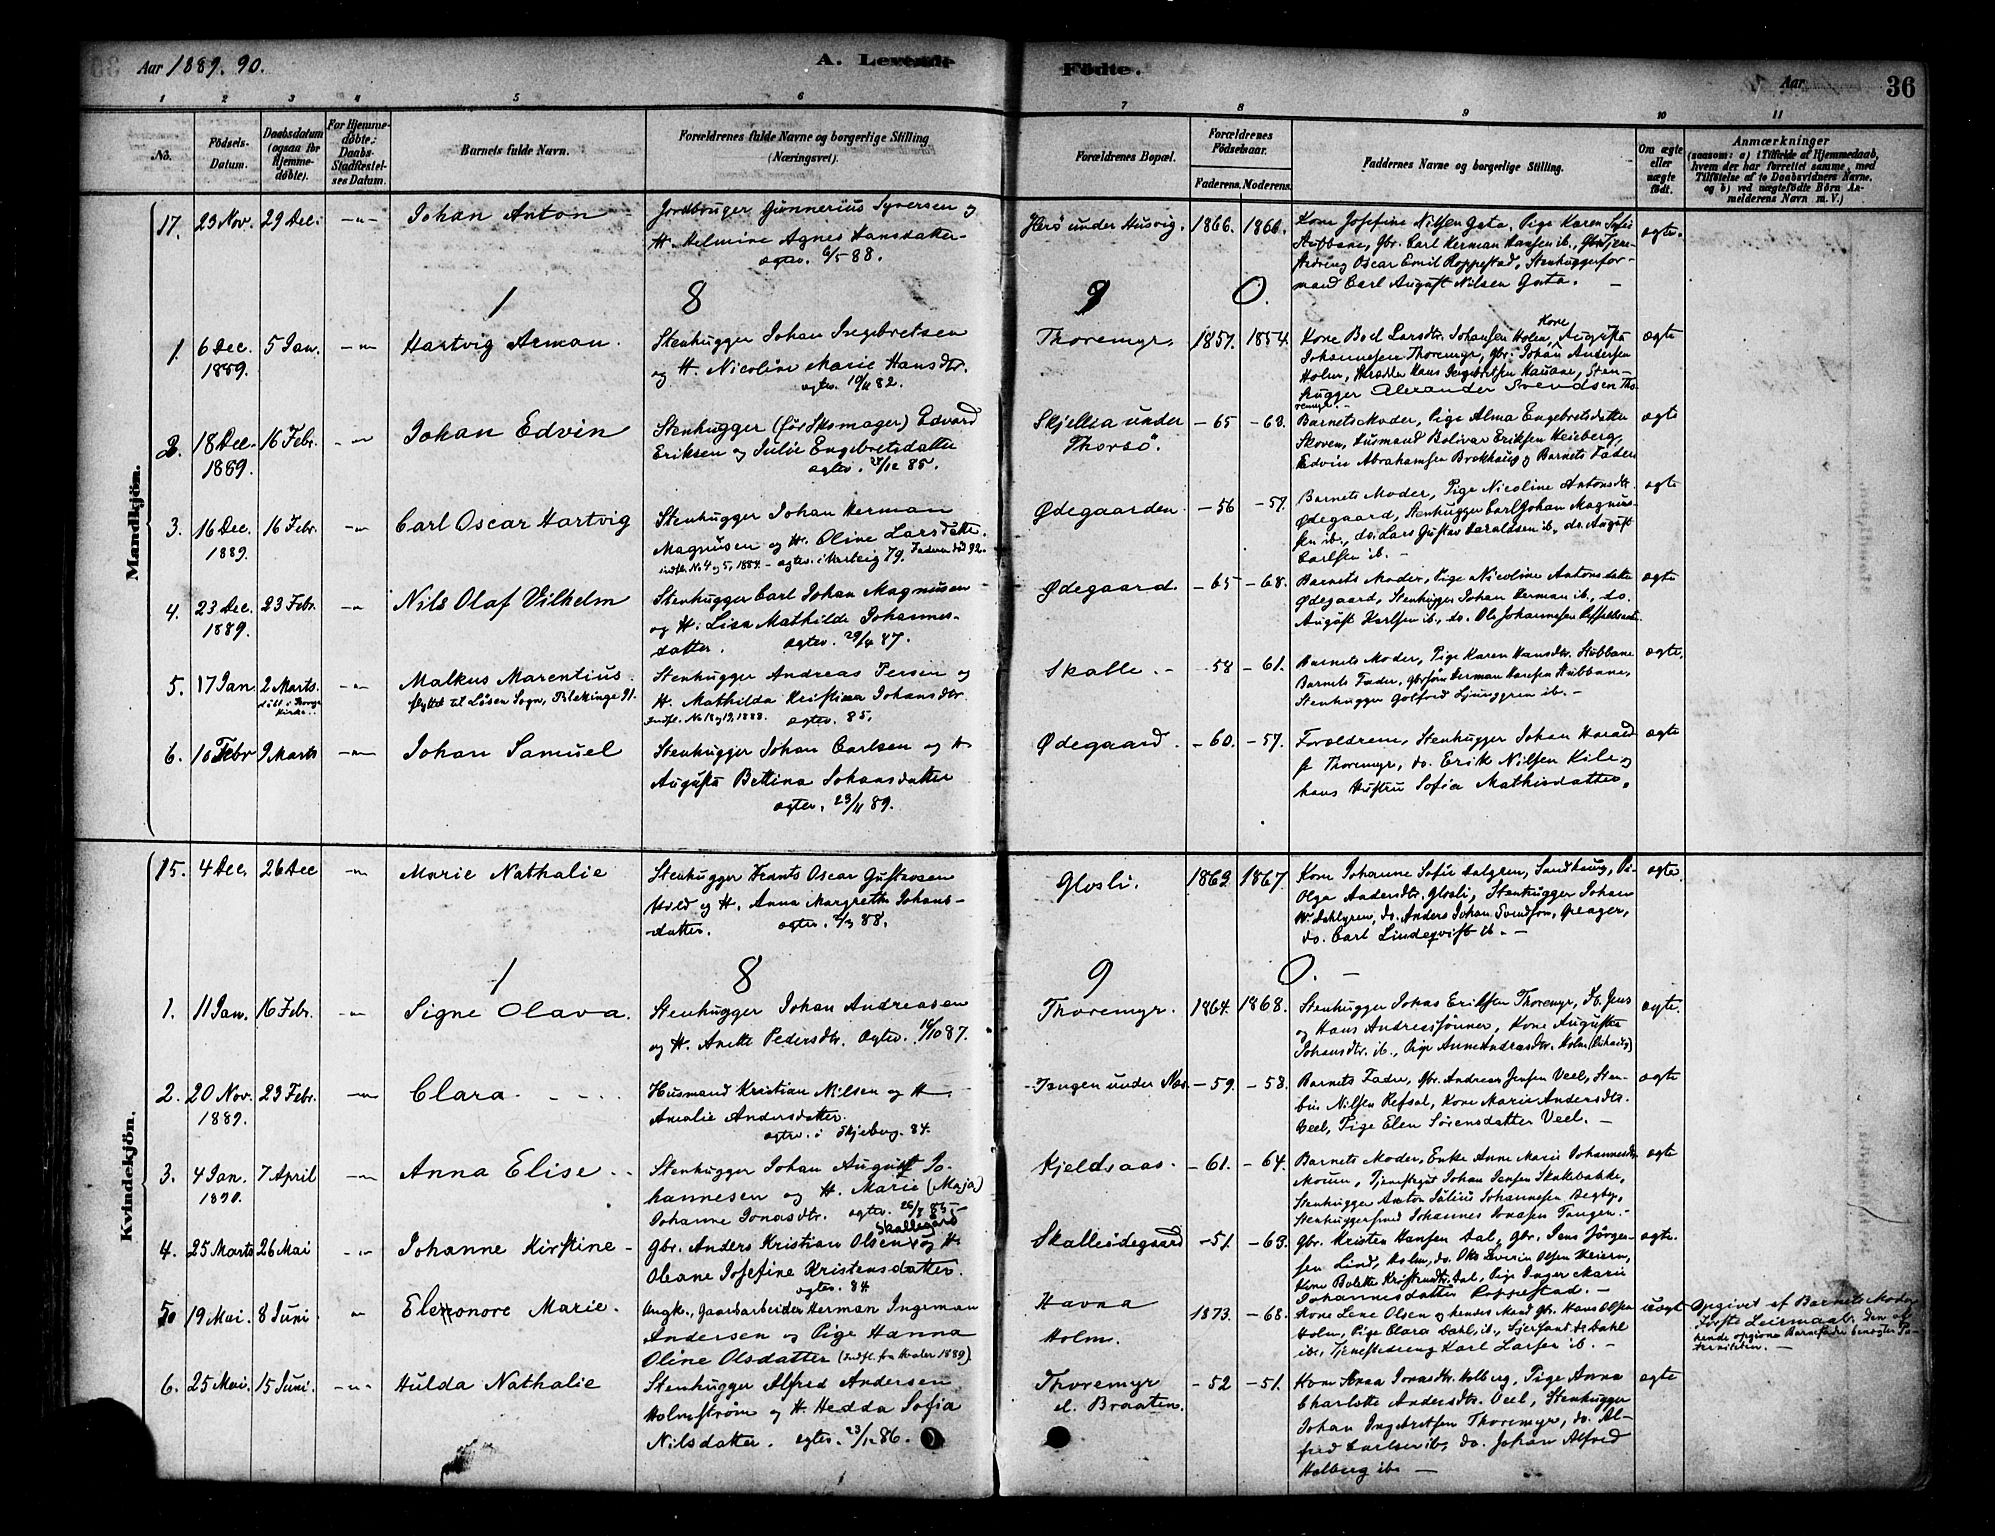 Aar 1889. 90.
A. Levende
Födte.
Aar
36
1 2 3 4 5 6 7 8 9 10 11
No.
Födsels-
Datum.
Daabsdatum
(ogsaa for
Hjemme-
döbte).
For Hjemme-
döbte:
Daabs-
Stadfæstel-
ses Datum.
Barnets fulde Navn.
Forældrenes fulde Navne og borgerlige Stilling
(Næringsvei).
Forældrenes Bopæl.
Forældrenes
Födselsaar.
Faderens. Moderens.
Faddernes Navne og borgerlige Stilling.
Om ægte
eller
uægte
født.
Anmærkninger
(saasom: a) i Tilfælde af Hjemmedaab,
hvem der har forrettet samme, med
Tilföielse af to Daabsvidners Navne.
og b) ved uægtefödte Börn An-
melderens Navn m. V.)
Mandkjön.
17. 23 Nov. 29 Dec. Johan Anton
Jordbruger Gunnerius Syversen og
H. Helmine Agnes Hansdatter
ægtev. 6/5 88.
Herö under Husvig. 1866. 1866.
Kone Josefine Nilsen Gata, Pige Karen Sofie
Stubbane, Gbr. Carl Herman Hansen ib., Tjene-
stedreng Oscar Emil Roppestad, Stenhuggerfor-
mand Carl August Nilsen Gata.
ægte.
1 8 9 0.
1. 6 Dec. 1889. 5 Jan. Hartvig Arman.
Stenhugger Johan Ingebretsen
og H. Nicoline Marie Hansdtr.
ægtev. 19/11 82.
Thoremyr. 1857. 1854.
Kone Boel Larsdtr. Johansen Holm, Kone Augusta
Johannesen Thoremyr, Gbr. Johan Andersen
Holm, Skrædder Hans Ingebretsen Hauane, Sten-
hugger Alexander Svendsen Tho-
remyr.
ægte
2. 18 Dec. 1889. 16 Febr. Johan Edvin
Stenhugger (før Skomager) Edvard
Eriksen og Julie Engebretsdatter
Skjellsa under
Thorsö.
65 63.
Barnets Moder, Pige Alma Engebretsdatter
Skoven, Husmand Bolivar Eriksen Heieberg,
Edvin Abrahamsen Brekhaug og Barnets Fader
ægte
3. 16 Dec. 1889. 16 Febr. Carl Oscar Hartvig
Stenhugger Johan Herman
Magnusen og H. Oline Larsdatter.
indfl. No. 4 og 5, 1884. ægtev. i Varteig 79. Faderen död 92.
Ødegaarden 56 57.
Barnets Moder, Pige Nicoline Antonsdtr.
Ødegaard, Stenhugger Carl Johan Magnus-
sen ib., do. Lars Gustav Haraldsen ib., do. August
Carlsen ib.
ægte
4. 23 Dec. 1889. 23 Febr. Nils Olaf Vilhelm
Stenhugger Carl Johan Magnusen
og H. Lisa Mathilde Johannes-
datter.
Ødegaard 65 68.
Barnets Moder, Pige Nicoline Antonsdatter
Ødegaard, Stenhugger Johan Herman ib., do.
August Karlsen ib., do. Ole Johannesen
ægte
5. 17 Jan 2 Marts. Malkus Marentius.
flyttet til Løsen Sogn, Blekinge 91.
Stenhugger Andreas Persen og
H. Mathilda Kristina Johansdtr.
Indfl. No 18 og 19, 1888. ægtev. 85.
Skalle. 58 61.
Barnets Moder, Pige Karen Hansdtr. Stubbane
Barnets Fader, Gbrsön Herman Hansen Stubbane,
Stenhugger Gotfred Ljunggren ib.
ægte.
6. 10 Febr 9 Marts Johan Samuel
Stenhugger Johan Carlsen og H
Augusta Bettina Johansdatter
ægtev. 23/11 89.
Ødegaard. 60. 57.
Forældrene, Stenhugger Johan Harald-
sen Thoremyr, do. Erik Nilsen Kile og
hans Hustru Sofia Mathisdatter.
ægte
Kvindekjön.
15. 4 Dec. 26 Dec Marie Nathalie
Stenhugger Frants Oscar Gustavsen
Hold og H. Anna Margrethe Johans-
datter.
Glosli. 1862 1867.
Kone Johanne Sofie Dalgren, Sandhaug, Pi-
Olga Andersdtr. Glosli, Stenhugger Johan
W. Dahlgren, do. Anders Johan Svendsen, Greager,
do. Carl Lindeqvist ib.
ægte.
1 8 9 0.
1. 11 Jan. 16 Febr. Signe Olava.
Stenhugger Johan Andreasen
og H. Anette Pedersdtr. Ægtev. 16/10 87.
Thoremyr. 1864. 1868.
Stenhugger Johan Eriksen Thoremyr, do. Jens
og Hans Andreassönner, Kone Augusta
Johansdtr. ib., Pige Anne Andreasdtr. Holm
ægte.
2. 20 Nov. 1889. 23 Febr. Clara.
Husmand Kristian Nilsen og H
Amalie Andersdatter.
ægtev. i Skjeberg. 84.
Tangen under Næs 59. 58.
Barnets Fader, Gbr. Andreas Jensen Veel, Sten-
bin Nilsen Refsal, Kone Marie Andersdtr.
Veel, Pige Elen Sörensdatter Veel.
ægte
3. 4 Jan. 1890. 7 April Anna Elise
Stenhugger Johan August Jo-
hannesen og H. Marie (Maja)
Johanne Jonasdtr.
Kjeldraas. 61. 64.
Barnets Moder, Enke Anne Marie Johannesdtr
Moum, Tjenestegut Johan Jensen Skakebakke,
Stenhugger Anton Julius Johannesen Segby,
Johannes Jonasen Tangen.
ægte
4. 25 Marts 26 Mai Johanne Kirstine
Gbr. Anders Kristian Olsen Skallegard og H.
Oleane Josefine Kristensdatter.
ægtev. 84.
Skallesdegaard 51. 63.
Gbr. Kristen Hansen Aal, Gbr. Jens Jörgen-
sen Lind, Holm, do. Ole Severin Olsen Heiern,
Kone Bolette Kristensdtr. Aal, Pige Inger Marie
Johannesdatter Roppestad.
ægte.
5. 19 Mai. 8 Juni Elenonore Marie.
Ungk., Gaardsarbeider Herman Ingeman
Andersen og Pige Hanna
Oline Olsdatter (indfl. fra Hvaler 1889)
Havna
Holm.
1873. 68.
Kone Lene Olsen og hendes Mand Gbr. Hans Olsen
Holm, Pige Clara Dahl, ib.,
ib., Tjenestedreng Karl Larsen ib.
uægte
Opgivet af Barnets Moder.
Første Leiermaal. Den af
hende opgivne Barnefader benægter Pa-
terniteten.
6. 25 Mai. 15 Juni. Hulda Nathalie
Stenhugger Alfred Andersen
Holmström og H. Hedda Sofia
Nilsdatter. ægtev. 23/12 86.
Thoremyr
el. Braaten.
52 51.
Kone Anna Jonasdtr. Holberg, Pige Anna
Charlotte Andersdtr. Veel, Stenhugger
Johan Ingebretsen Thoremyr, do. Al-
fred Carlsen ib., do. Johan Alfred
Holberg ib.
ægte